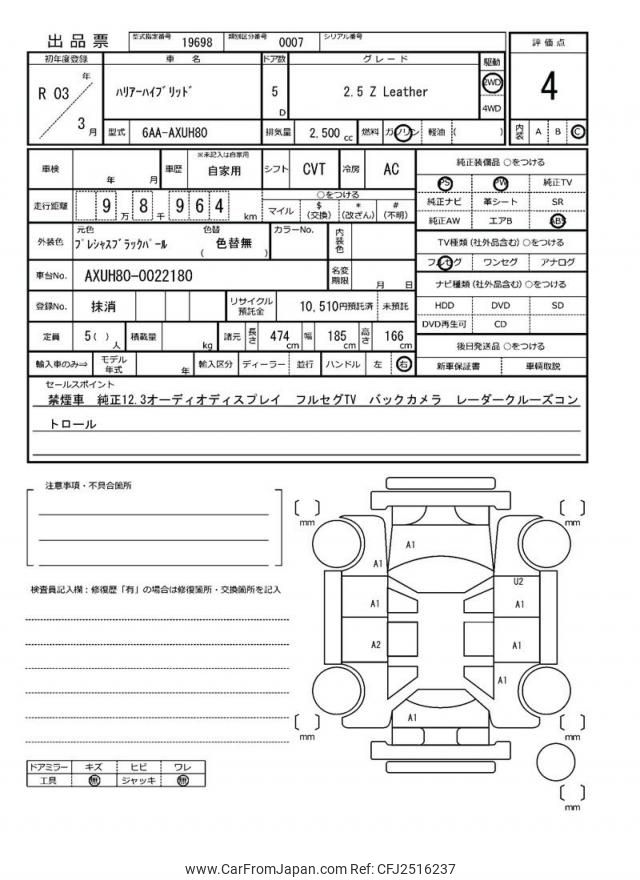 出品票 型式指定番号 19698 類別区分番号 0007 シリアル番号
初年度登録 車名 ドア数 グレード 駆動 評価点
R 03 年 3 月 ﾊﾘｱｰﾊｲﾌﾞﾘｯﾄﾞ 5 D 2.5 Z Leather 2WD 4WD 4
型式 6AA-AXUH80 排気量 2,500 cc 燃料 ガソリン 軽油 ( ) 内装 A B C
車検 年 月 車歴 ※未記入は自家用 自家用 シフト CVT 冷房 AC 純正装備品 ○をつける
PS PW 純正TV
走行距離 9 万 8 千 9 6 4 km ○をつける
マイル $ (交換) * (改ざん) # (不明)
純正ナビ 革シート SR
純正AW エアB ABS
外装色 元色 ﾌﾟﾚｼｬｽﾌﾞﾗｯｸﾊﾟｰﾙ 色替 色替無 ( ) カラーNo. 内装色
TV種類 (社外品含む) ○をつける
フルセグ ワンセグ アナログ
車台No. AXUH80-0022180 名変期限 月 日
ナビ種類 (社外品含む) ○をつける
登録No. 抹消 リサイクル預託金 10,510円預託済 未預託
HDD DVD SD
DVD再生可 CD
定員 5 ( ) 人 積載量 kg 諸元 長さ 474 cm 幅 185 cm 高さ 166 cm
後日発送品 ○をつける
輸入車のみ⇒ モデル年式 年 輸入区分 ディーラー 並行 ハンドル 左 右
新車保証書 車輌取説
セールスポイント
禁煙車 純正12.3オーディオディスプレイ フルセグTV バックカメラ レーダークルーズコン
トロール
注意事項・不具合箇所
検査員記入欄：修復歴「有」の場合は修復箇所・交換箇所を記入
mm mm
A1
A1
U2
A1 A1
A2 A1
A1
A1
mm mm
mm
ドアミラー キズ ヒビ ワレ
工具 無 ジャッキ 無
www.CarFromJapan.com Ref: CFJ2516237